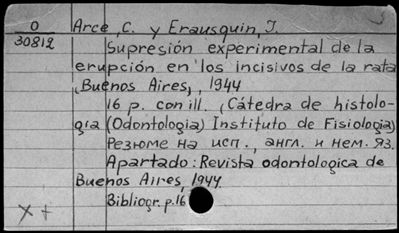 O Arce, C. y Erausquin, J.
30812 Supresión experimental de la
erupción en los incisivos de la rata
, Buenos Aires, , 1944
16 p. con ill. (Cátedra de histolo-
gía (Odontologia) Instituto de Fisiologia)
Резюме на исп., англ. и нем. яз.
Apartado: Revista odontologica de
Buenos Aires, 1944
Bibliogr. p. 16
X +